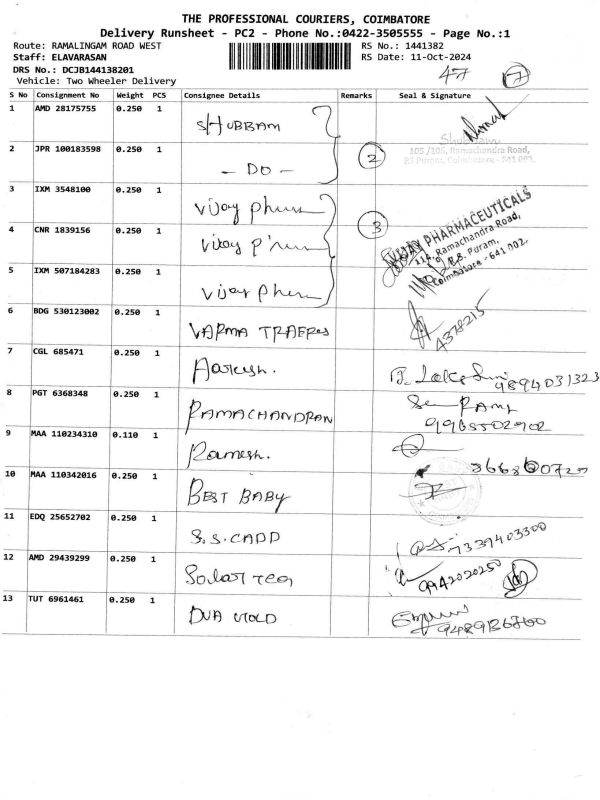 THE PROFESSIONAL COURIERS, COIMBATORE
Delivery Runsheet - PC2 - Phone No.:0422-3505555 - Page No.:1
Route: RAMALINGAM ROAD WEST RS No.: 1441382
Staff: ELAVARASAN RS Date: 11-Oct-2024
DRS No.: DCJB144138201 47 7
Vehicle: Two Wheeler Delivery
S No Consignment No Weight PCS Consignee Details Remarks Seal & Signature
1 AMD 28175755 0.250 1 SHUBBAM
2 JPR 100183598 0.250 1 - DO - 2 105/106, Ramachandra Road,
RS Puram, Coimbatore - 641 002.
3 IXM 3548100 0.250 1 Vijay Pharm
4 CNR 1839156 0.250 1 Vijay Pharm 3 VIJAY PHARMACEUTICALS
114, Ramachandra Road,
R.S. Puram,
Coimbatore - 641 002.
5 IXM 507184283 0.250 1 Vijay Pharm
6 BDG 530123002 0.250 1 VARMA TRADERS 4378215
7 CGL 685471 0.250 1 Aakash. 9894031323
8 PGT 6368348 0.250 1 RAMACHANDRAN
9 MAA 110234310 0.110 1 Ramesh.
10 MAA 110342016 0.250 1 BEST BABY
11 EDQ 25652702 0.250 1 S.S.CADD 7339403300
12 AMD 29439299 0.250 1 9942020250
13 TUT 6961461 0.250 1 DUA GOLD